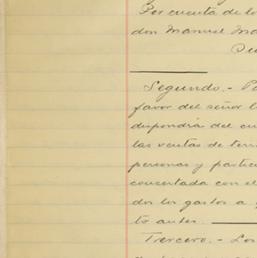 Por cuenta de lo
don Manuel Ma
Segundo.- P
favor del señor
dispondrá del cu
las ventas de terr
personas y particu
concertada con el
dos los gastos a
to antes.
Tercero.- Los